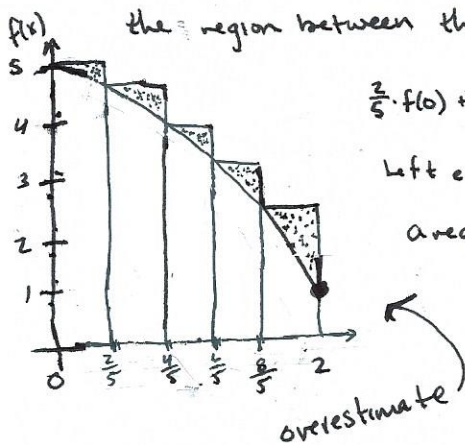 f(x) the region between th
5
4
3
2
1
2/5 · f(0) +
Left e
area
0 2/5 4/5 6/5 8/5 2
overestimate